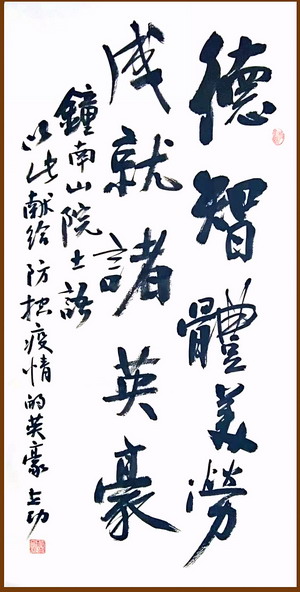 德智體美勞
成就諸英豪
鐘南山院士語
以此献给防控疫情的英豪 上功